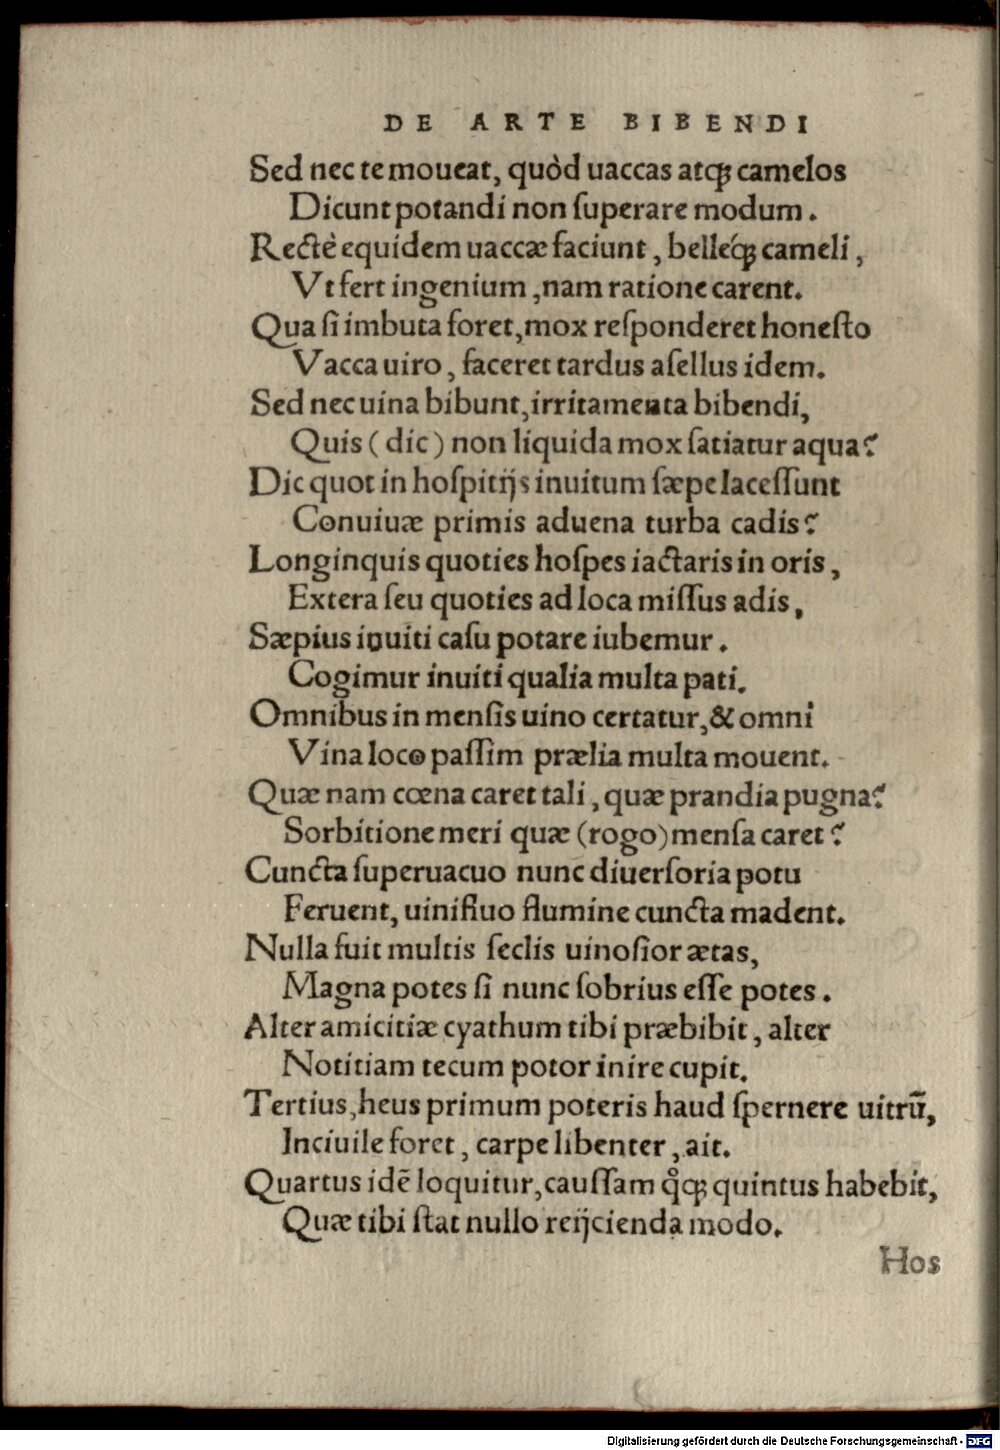 DE ARTE BIBENDI
Sed nec te moueat, quòd uaccas atqꝫ camelos
Dicunt potandi non ſuperare modum.
Rectè equidem uaccæ faciunt, belleq́ꝫ cameli,
Vt fert ingenium, nam ratione carent.
Qua ſi imbuta foret, mox reſponderet honeſto
Vacca uiro, faceret tardus aſellus idem.
Sed nec uina bibunt, irritamenta bibendi,
Quis (dic) non liquida mox ſatiatur aqua?
Dic quot in hoſpitijs inuitum ſæpe laceſſunt
Conuiuæ primis aduena turba cadis?
Longinquis quoties hoſpes iactaris in oris,
Extera ſeu quoties ad loca miſſus adis,
Sæpius inuiti caſu potare iubemur.
Cogimur inuiti qualia multa pati.
Omnibus in menſis uino certatur, & omni
Vina loco paſſim prælia multa mouent.
Quæ nam cœna caret tali, quæ prandia pugna?
Sorbitione meri quæ (rogo) menſa caret?
Cuncta ſuperuacuo nunc diuerſoria potu
Feruent, uinifluo flumine cuncta madent.
Nulla fuit multis ſeclis uinoſior ætas,
Magna potes ſi nunc ſobrius eſſe potes.
Alter amicitiæ cyathum tibi præbibit, alter
Notitiam tecum potor inire cupit.
Tertius, heus primum poteris haud ſpernere uitrū,
Inciuile foret, carpe libenter, ait.
Quartus idē loquitur, cauſſam q̊qꝫ quintus habebit,
Quæ tibi ſtat nullo reijcienda modo.
Hos
Digitalisierung gefördert durch die Deutsche Forschungsgemeinschaft - DFG